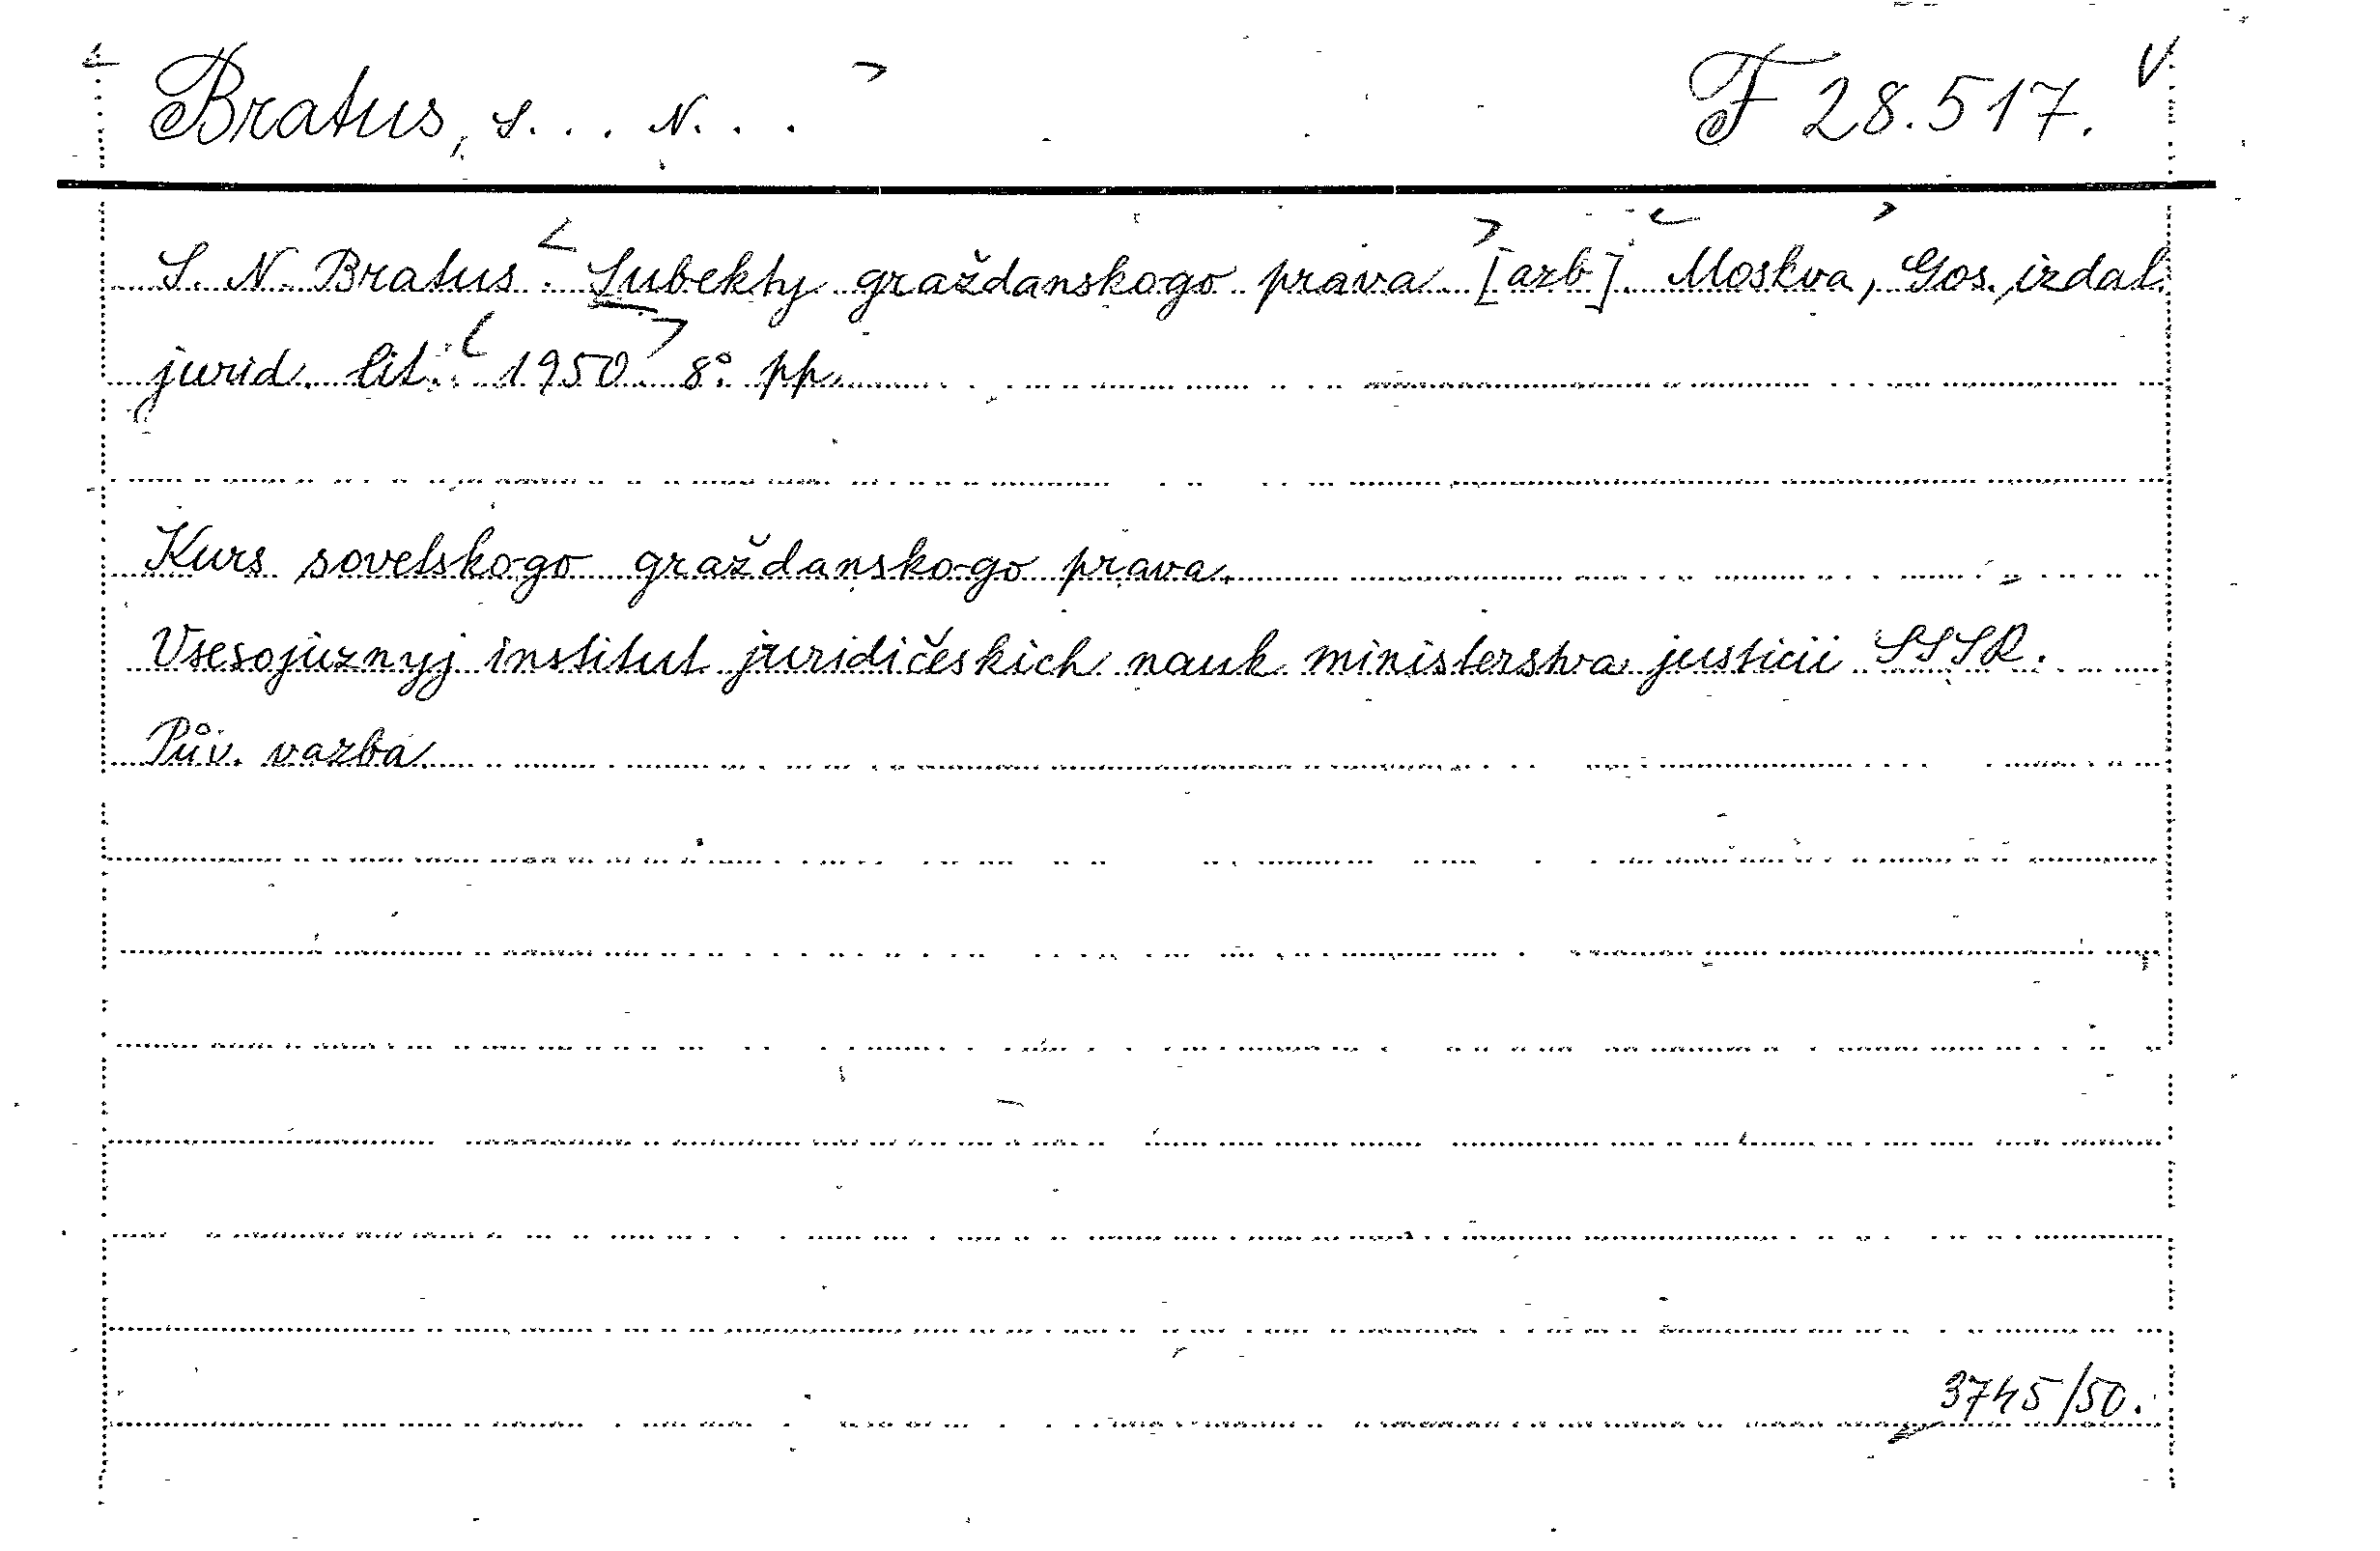 Bratus, S... N... F 28.517.
S. N. Bratus. Subekty graždanskogo prava. [azb]. Moskva, Gos. izdat.
jurid. lit. 1950. 8°. pp.
Kurs sovetskogo graždanskogo prava.
Vsesojuznyj institut juridičeskich nauk ministerstva justicii SSSR.
Pův. vazba.
3745/50.